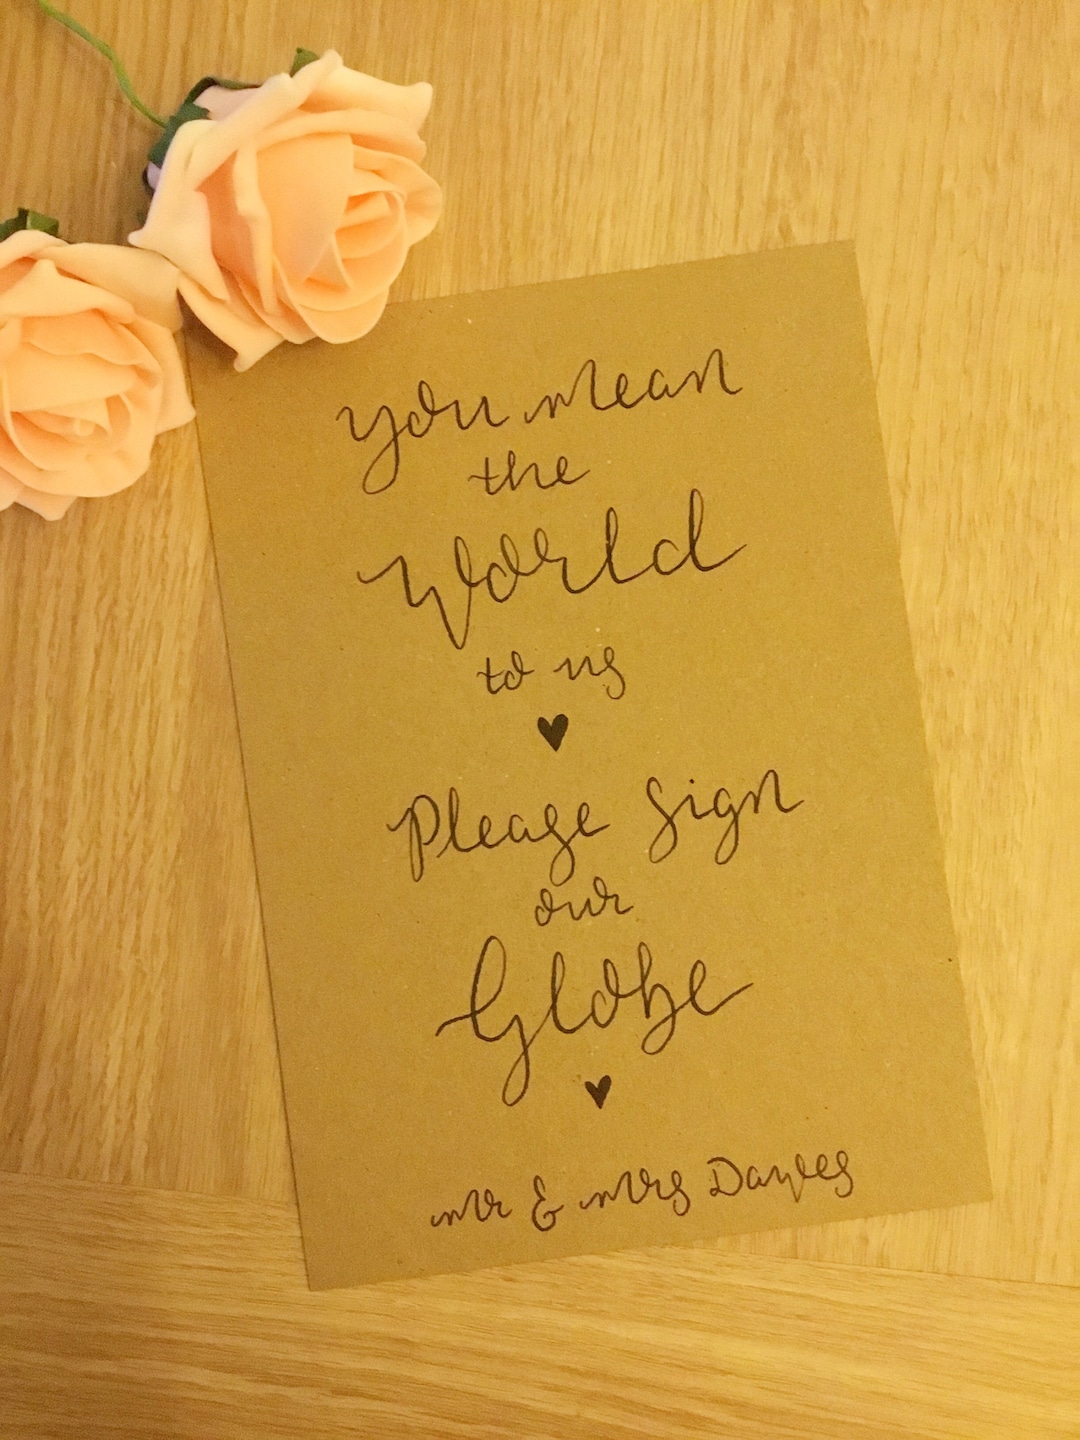 you mean
the
World
to us
Please sign
our
Globe
Mr & Mrs Dayles